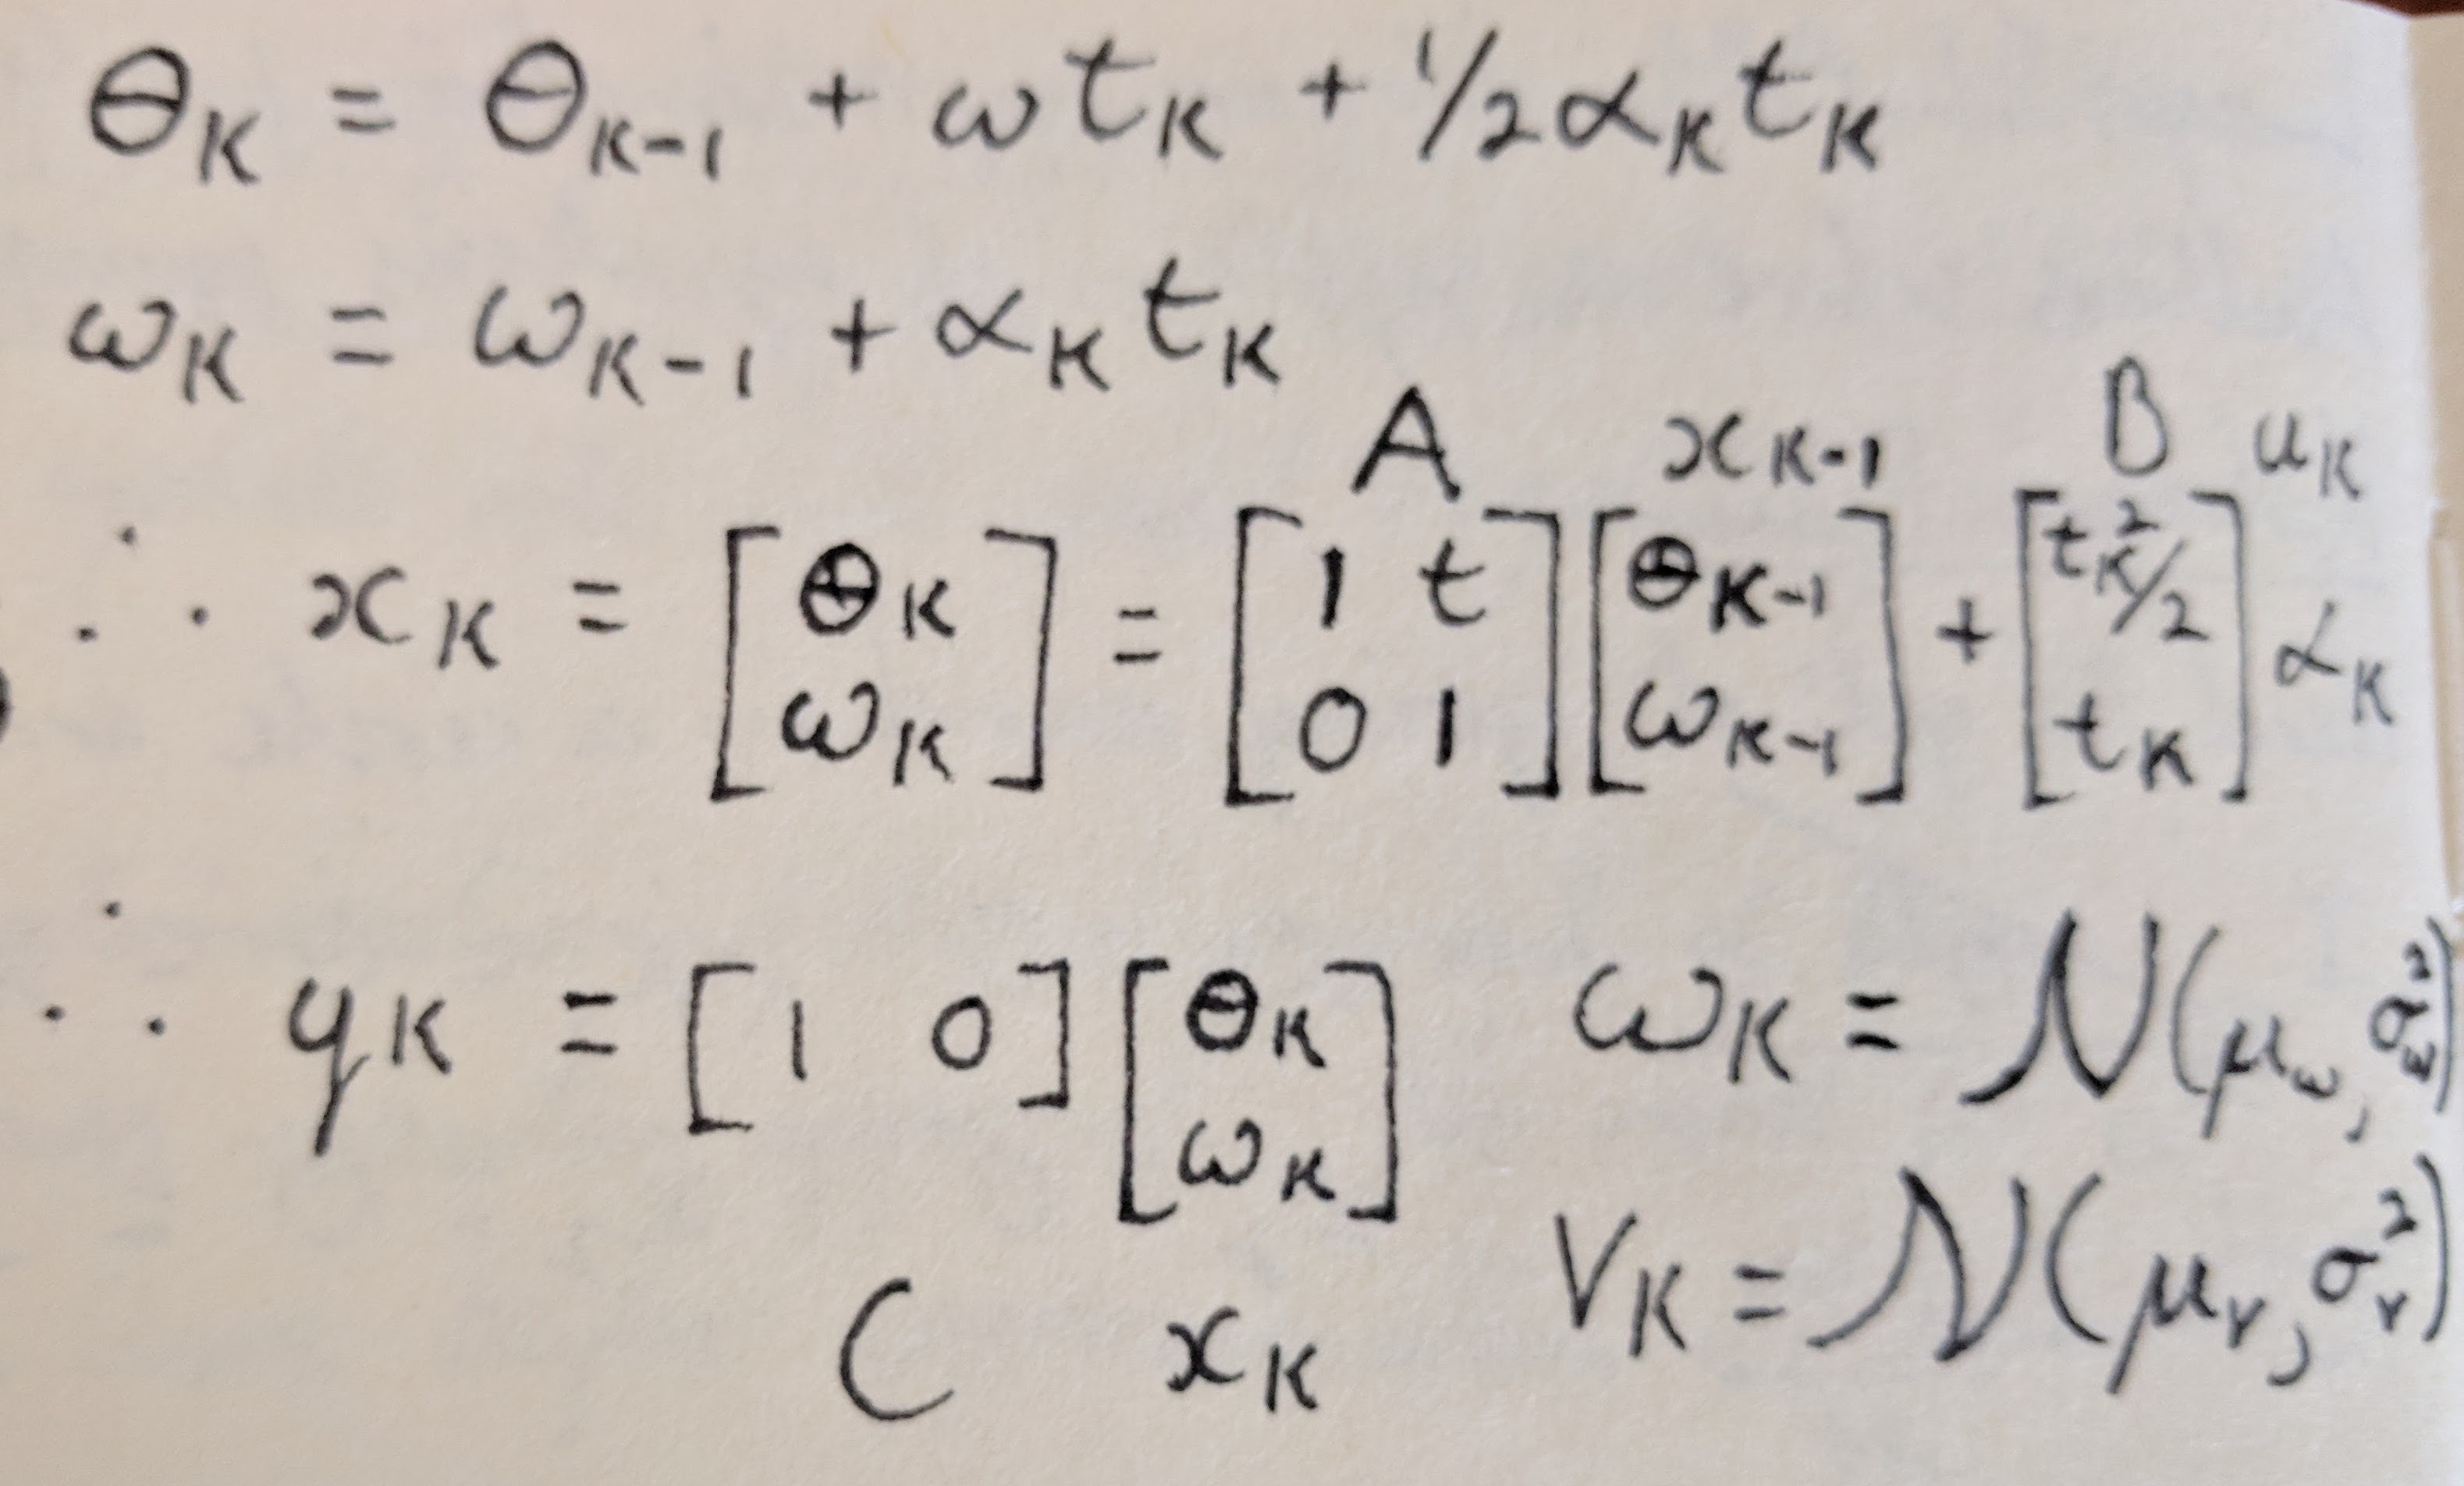 θₖ = θₖ₋₁ + ωtₖ + 1/2αₖtₖ
ωₖ = ωₖ₋₁ + αₖtₖ
A xₖ₋₁ B uₖ
∴ xₖ = [θₖ; ωₖ] = [1 t; 0 1] [θₖ₋₁; ωₖ₋₁] + [tₖ²/2; tₖ] αₖ
∴ yₖ = [1 0] [θₖ; ωₖ] ωₖ = N(μ_ω, σ_ω²)
C xₖ Vₖ = N(μᵥ, σᵥ²)